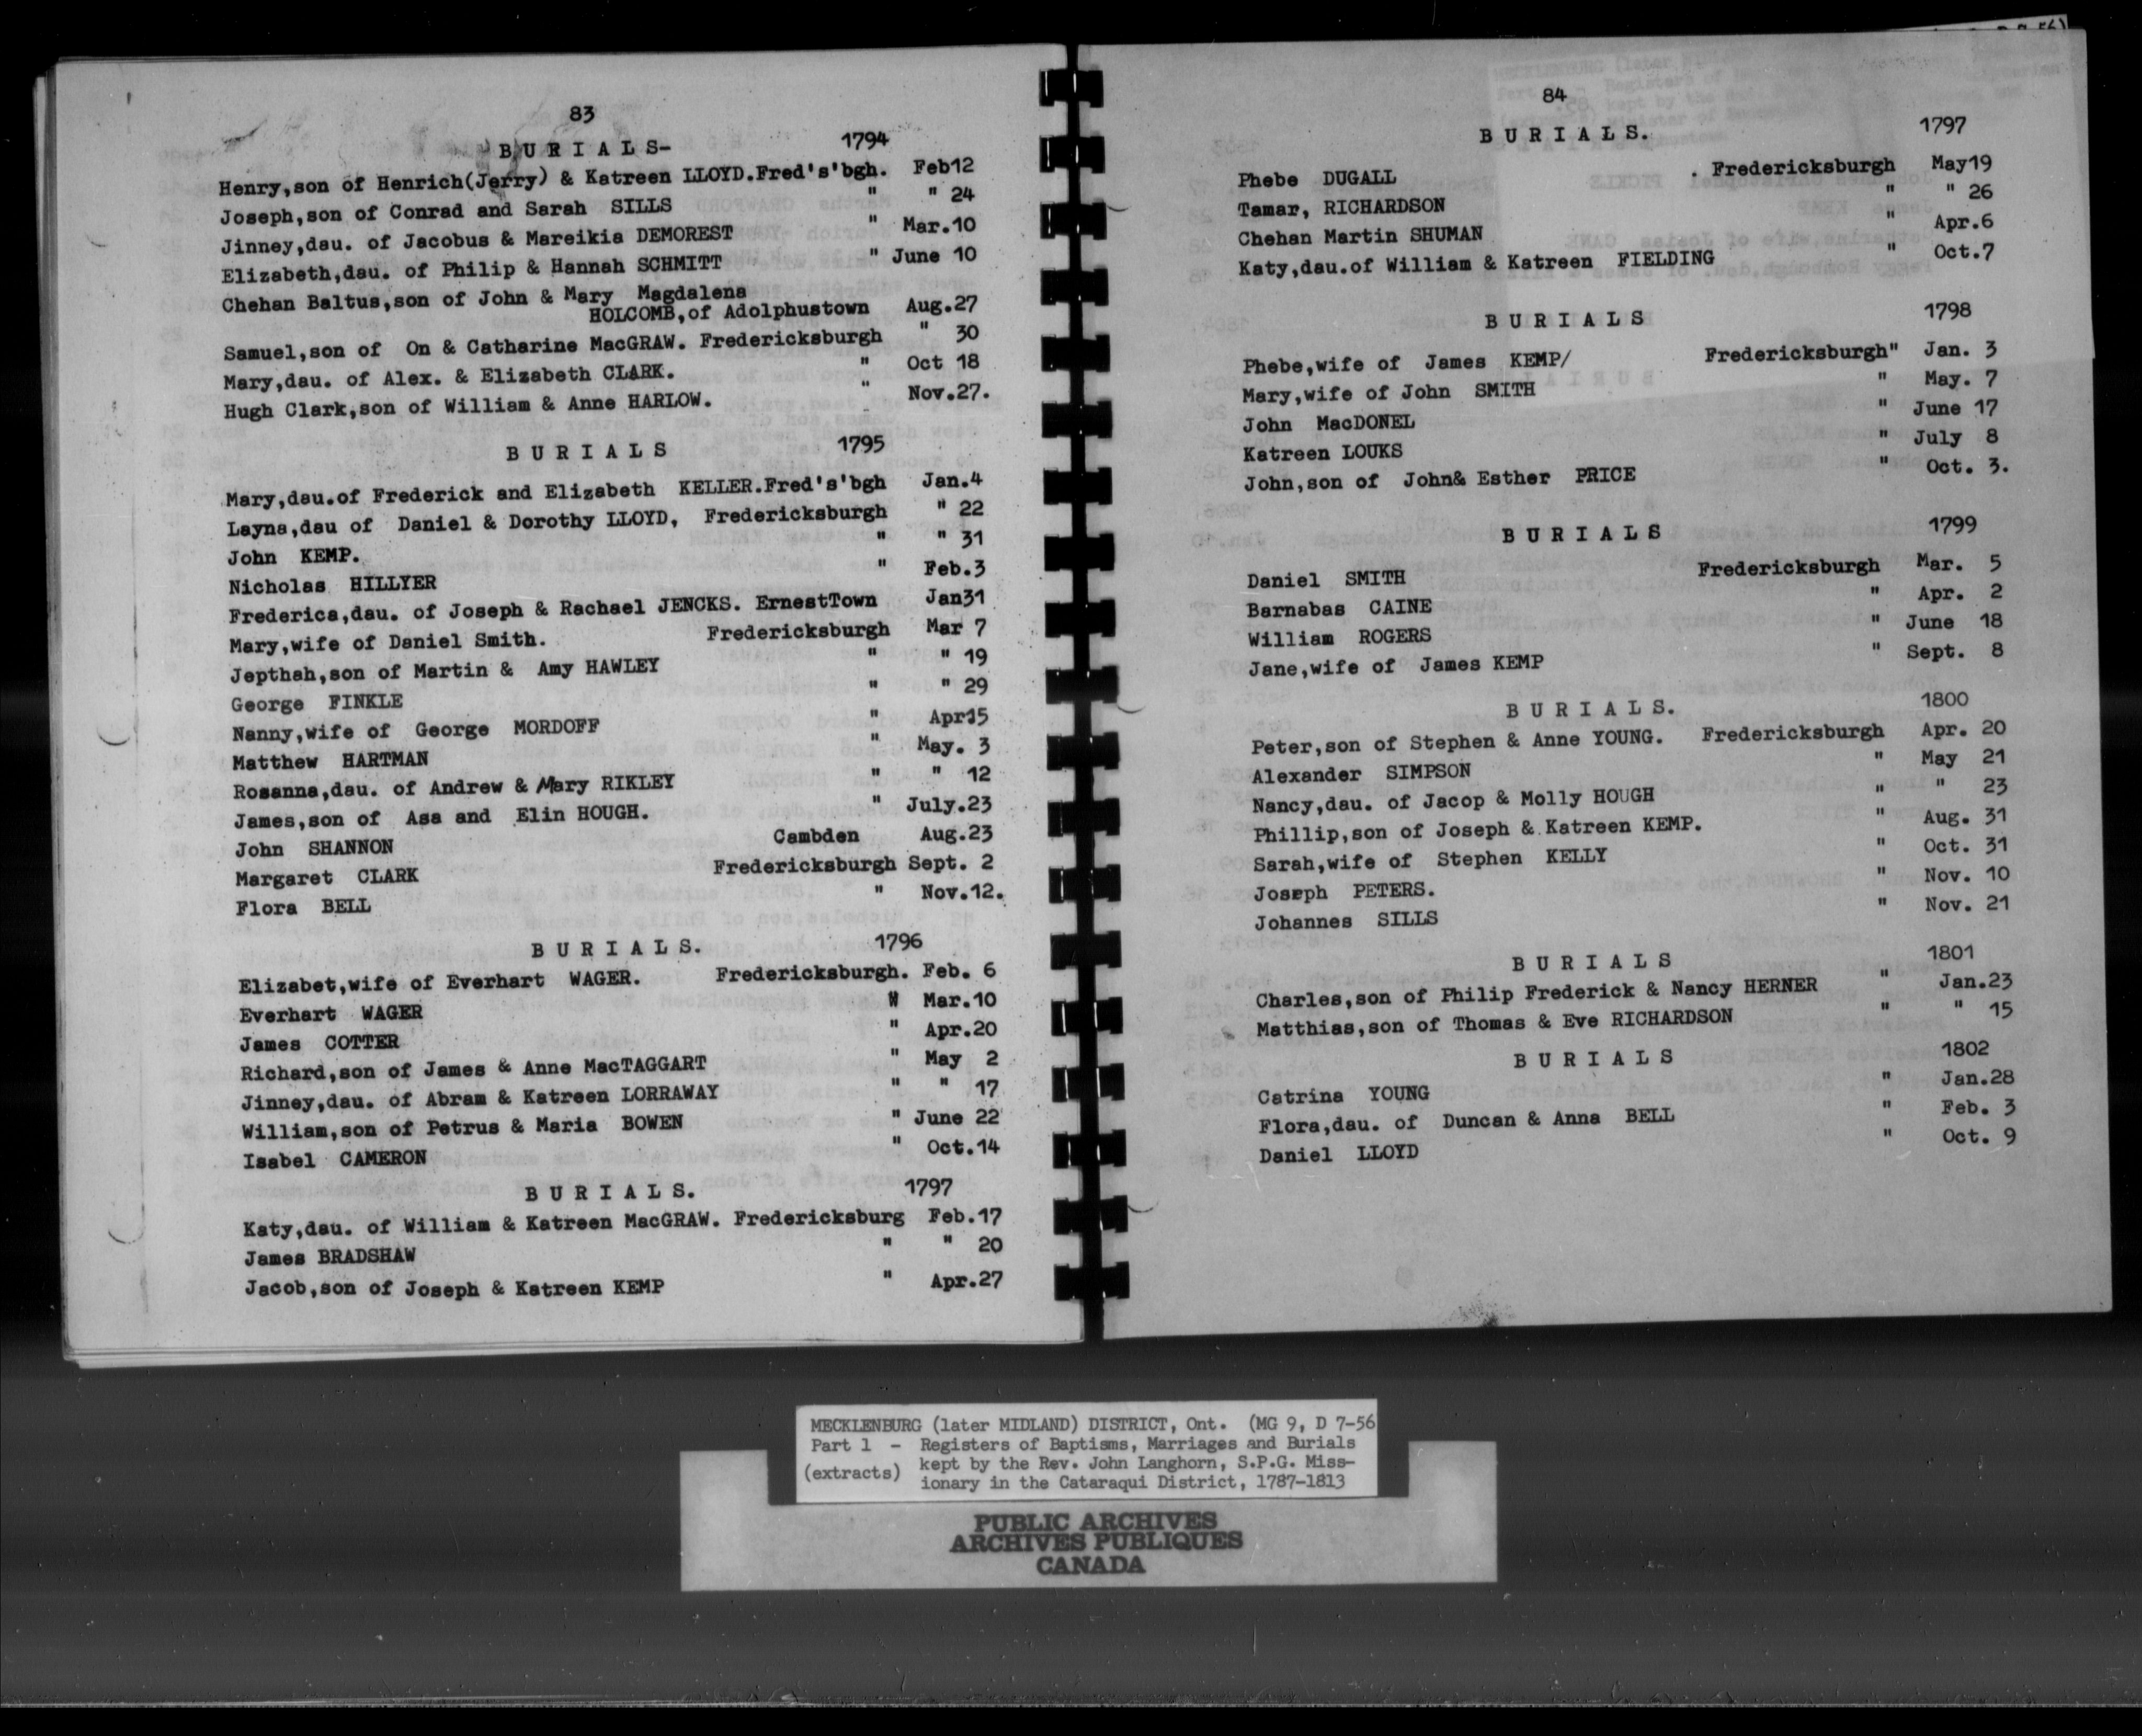 83
B U R I A L S- 1794
Henry,son of Henrich(Jerry) & Katreen LLOYD.Fred's'bgh. Feb12
Joseph,son of Conrad and Sarah SILLS " " 24
Jinney,dau. of Jacobus & Mareikia DEMOREST " Mar.10
Elizabeth,dau. of Philip & Hannah SCHMITT " June 10
Chehan Baltus,son of John & Mary Magdalena
HOLCOMB,of Adolphustown Aug.27
Samuel,son of On & Catharine MacGRAW. Fredericksburgh " 30
Mary,dau. of Alex. & Elizabeth CLARK. " Oct 18
Hugh Clark,son of William & Anne HARLOW. " Nov.27.
B U R I A L S 1795
Mary,dau.of Frederick and Elizabeth KELLER.Fred's'bgh Jan.4
Layna,dau of Daniel & Dorothy LLOYD, Fredericksburgh " 22
John KEMP. " " 31
Nicholas HILLYER " Feb.3
Frederica,dau. of Joseph & Rachael JENCKS. ErnestTown Jan31
Mary,wife of Daniel Smith. Fredericksburgh Mar 7
Jepthah,son of Martin & Amy HAWLEY " " 19
George FINKLE " " 29
Nanny,wife of George MORDOFF " Apr15
Matthew HARTMAN " May. 3
Rosanna,dau. of Andrew & Mary RIKLEY " " 12
James,son of Asa and Elin HOUGH. " July.23
John SHANNON Cambden Aug.23
Margaret CLARK Fredericksburgh Sept. 2
Flora BELL " Nov.12.
B U R I A L S. 1796
Elizabet,wife of Everhart WAGER. Fredericksburgh. Feb. 6
Everhart WAGER W Mar.10
James COTTER " Apr.20
Richard,son of James & Anne MacTAGGART " May 2
Jinney,dau. of Abram & Katreen LORRAWAY " " 17
William,son of Petrus & Maria BOWEN " June 22
Isabel CAMERON " Oct.14
B U R I A L S. 1797
Katy,dau. of William & Katreen MacGRAW. Fredericksburg Feb.17
James BRADSHAW " " 20
Jacob,son of Joseph & Katreen KEMP " Apr.27
84
B U R I A L S. 1797
Phebe DUGALL . Fredericksburgh May19
Tamar, RICHARDSON " " 26
Chehan Martin SHUMAN " Apr.6
Katy,dau.of William & Katreen FIELDING " Oct.7
B U R I A L S 1798
Phebe,wife of James KEMP/ Fredericksburgh" Jan. 3
Mary,wife of John SMITH " May. 7
John MacDONEL " June 17
Katreen LOUKS " July 8
John,son of John& Esther PRICE " Oct. 3.
B U R I A L S 1799
Daniel SMITH Fredericksburgh Mar. 5
Barnabas CAINE " Apr. 2
William ROGERS " June 18
Jane,wife of James KEMP " Sept. 8
B U R I A L S. 1800
Peter,son of Stephen & Anne YOUNG. Fredericksburgh Apr. 20
Alexander SIMPSON " May 21
Nancy,dau. of Jacop & Molly HOUGH " " 23
Phillip,son of Joseph & Katreen KEMP. " Aug. 31
Sarah,wife of Stephen KELLY " Oct. 31
Joseph PETERS. " Nov. 10
Johannes SILLS " Nov. 21
B U R I A L S 1801
Charles,son of Philip Frederick & Nancy HERNER " Jan.23
Matthias,son of Thomas & Eve RICHARDSON " " 15
B U R I A L S 1802
Catrina YOUNG " Jan.28
Flora,dau. of Duncan & Anna BELL " Feb. 3
Daniel LLOYD " Oct. 9
MECKLENBURG (later MIDLAND) DISTRICT, Ont. (MG 9, D 7-56
Part 1 - Registers of Baptisms, Marriages and Burials
(extracts) kept by the Rev. John Langhorn, S.P.G. Miss-
ionary in the Cataraqui District, 1787-1813
PUBLIC ARCHIVES
ARCHIVES PUBLIQUES
CANADA